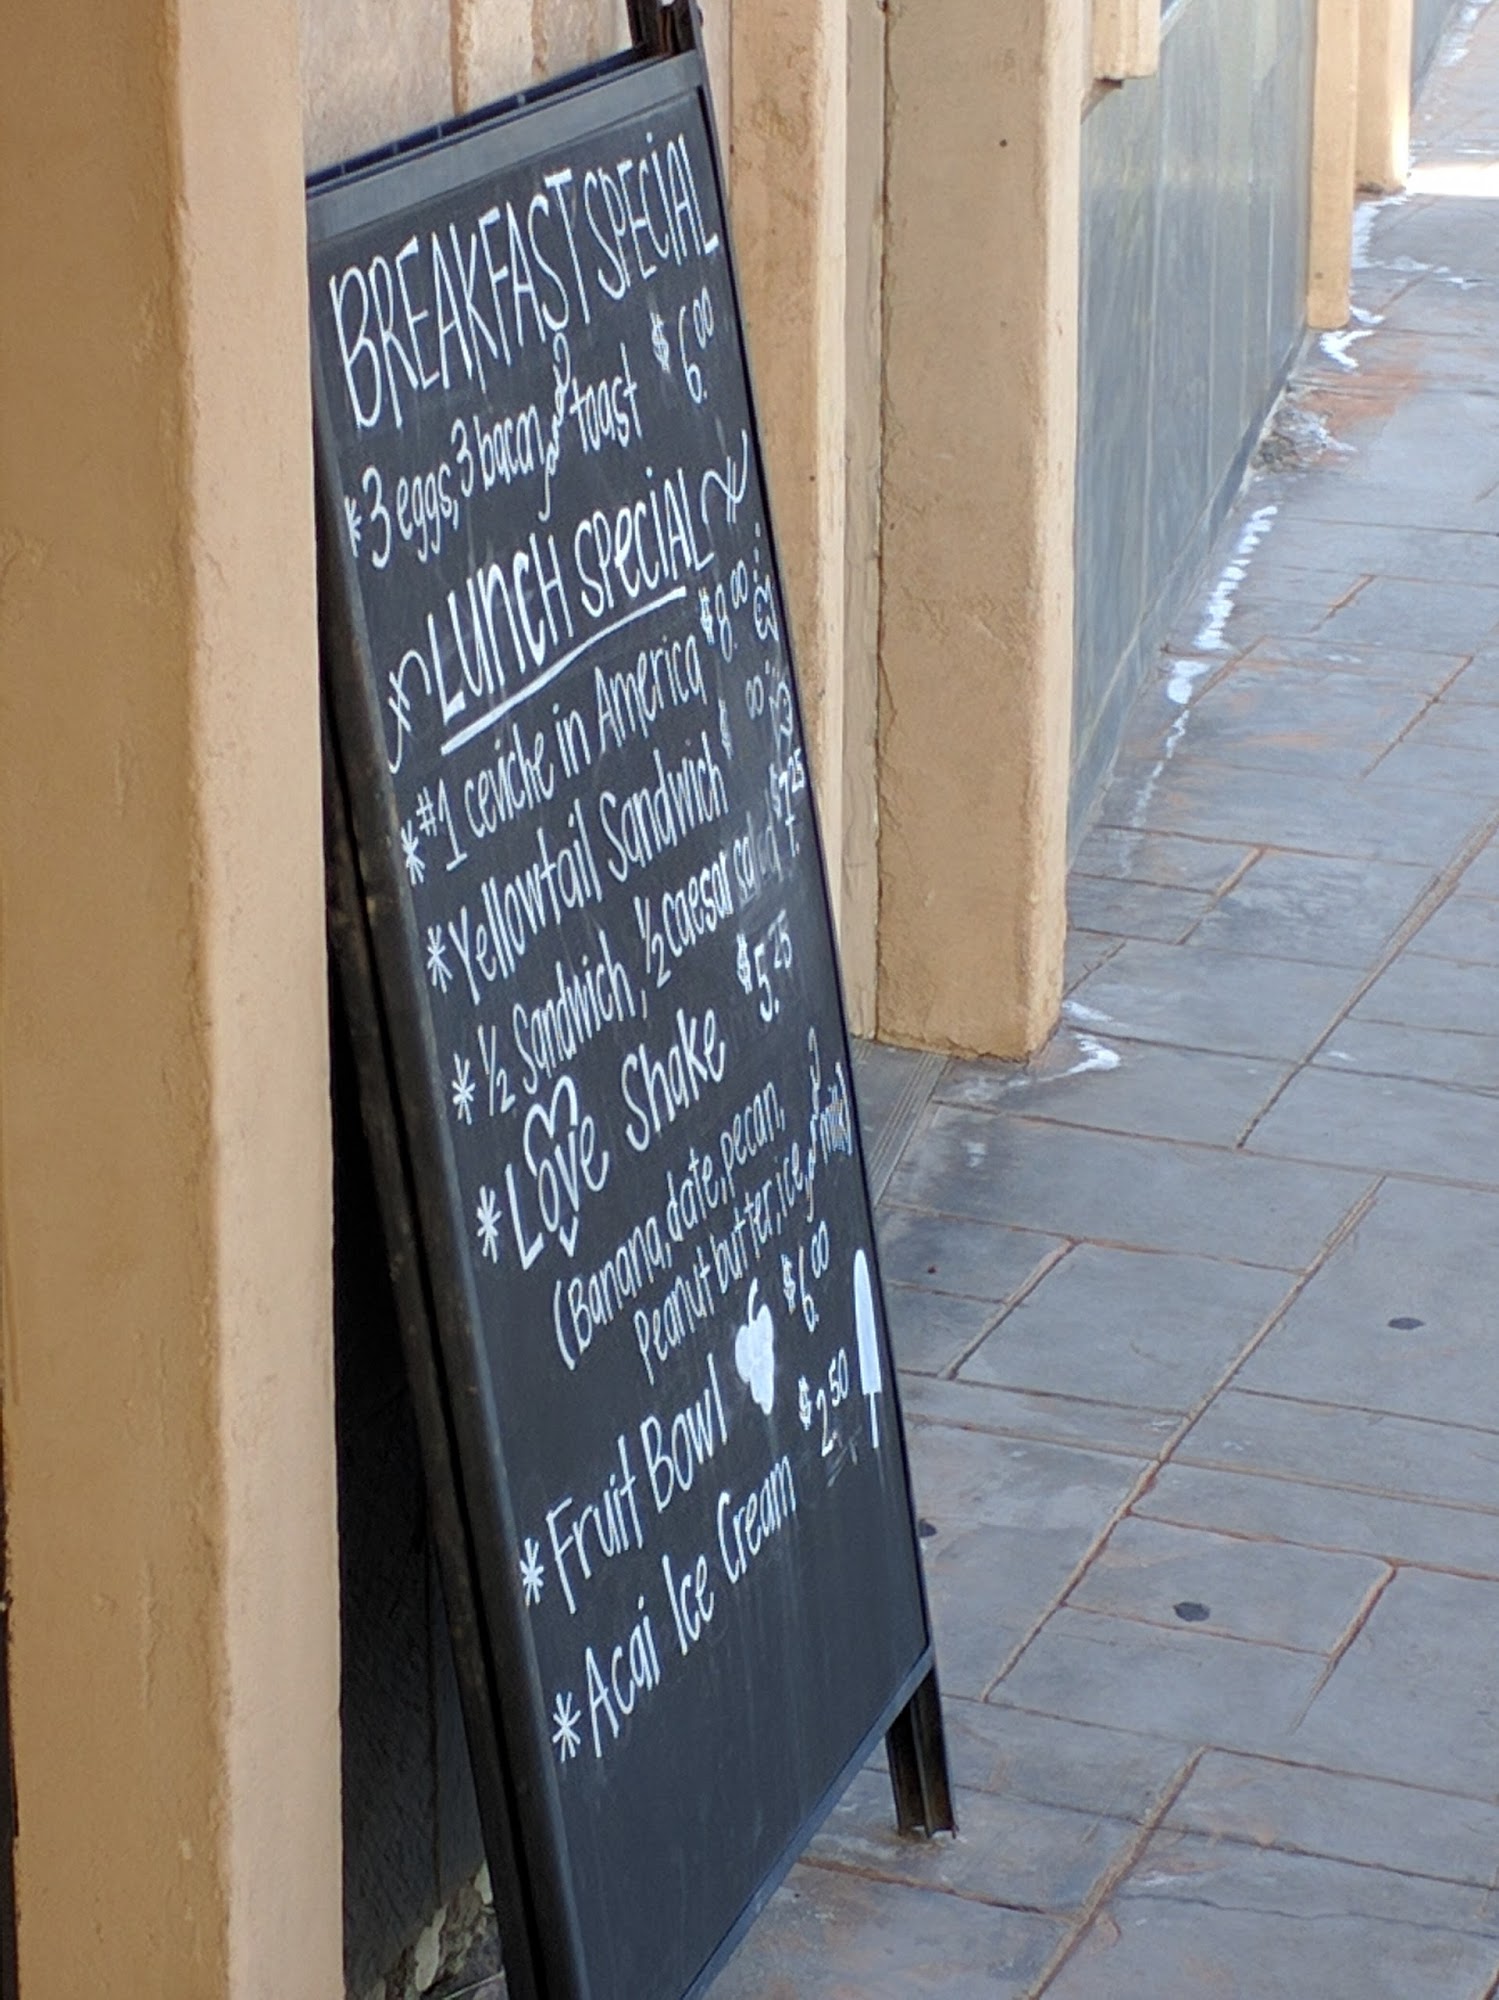 BREAKFAST SPECIAL
*3 eggs, 3 bacon, & toast $6.00
LUNCH SPECIAL
*#1 ceviche in America $8.00
*Yellowtail Sandwich $ .00
*1/2 Sandwich, 1/2 caesar salad $7.25
*LOVE Shake $5.25
(Banana, date, pecan,
Peanut butter, ice, & milk)
*Fruit Bowl $6.00
*Acai Ice Cream $2.50